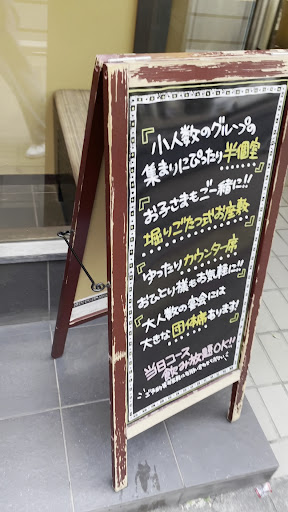 『小人数のグループの
集まりにぴったり半個室』
『お子さまもご一緒に!!
堀りごたつ式お座敷』
『ゆったりカウンター席
おひとり様もお気軽に!!』
『大人数の宴会には
大きな団体席あります!』
当日コース
飲み放題OK!!